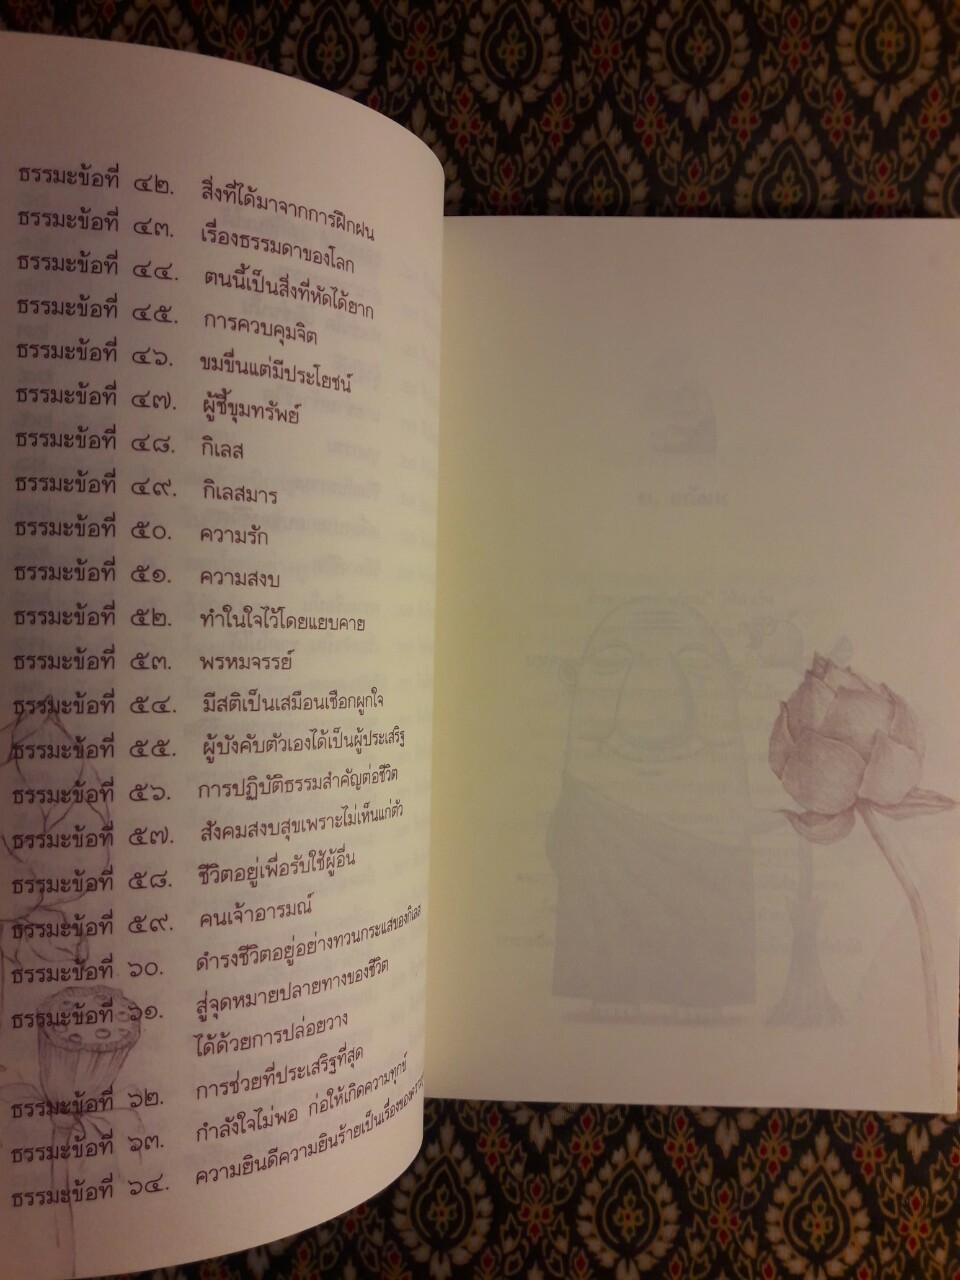 ธรรมะข้อที่ ๔๒. สิ่งที่ได้มาจากการฝึกฝน
ธรรมะข้อที่ ๔๓. เรื่องธรรมดาของโลก
ธรรมะข้อที่ ๔๔. ตนนี้เป็นสิ่งที่หัดได้ยาก
ธรรมะข้อที่ ๔๕. การควบคุมจิต
ธรรมะข้อที่ ๔๖. ขมขื่นแต่มีประโยชน์
ธรรมะข้อที่ ๔๗. ผู้ชี้ขุมทรัพย์
ธรรมะข้อที่ ๔๘. กิเลส
ธรรมะข้อที่ ๔๙. กิเลสมาร
ธรรมะข้อที่ ๕๐. ความรัก
ธรรมะข้อที่ ๕๑. ความสงบ
ธรรมะข้อที่ ๕๒. ทำในใจไว้โดยแยบคาย
ธรรมะข้อที่ ๕๓. พรหมจรรย์
ธรรมะข้อที่ ๕๔. มีสติเป็นเสมือนเชือกผูกใจ
ธรรมะข้อที่ ๕๕. ผู้บังคับตัวเองได้เป็นผู้ประเสริฐ
ธรรมะข้อที่ ๕๖. การปฏิบัติธรรมสำคัญต่อชีวิต
ธรรมะข้อที่ ๕๗. สังคมสงบสุขเพราะไม่เห็นแก่ตัว
ธรรมะข้อที่ ๕๘. ชีวิตอยู่เพื่อรับใช้ผู้อื่น
ธรรมะข้อที่ ๕๙. คนเจ้าอารมณ์
ธรรมะข้อที่ ๖๐. ดำรงชีวิตอยู่อย่างทวนกระแสของกิเลส
ธรรมะข้อที่ ๖๑. สู่จุดหมายปลายทางของชีวิต
ได้ด้วยการปล่อยวาง
ธรรมะข้อที่ ๖๒. การช่วยที่ประเสริฐที่สุด
ธรรมะข้อที่ ๖๓. กำลังใจไม่พอ ก่อให้เกิดความทุกข์
ธรรมะข้อที่ ๖๔. ความยินดีความยินร้ายเป็นเรื่องของ